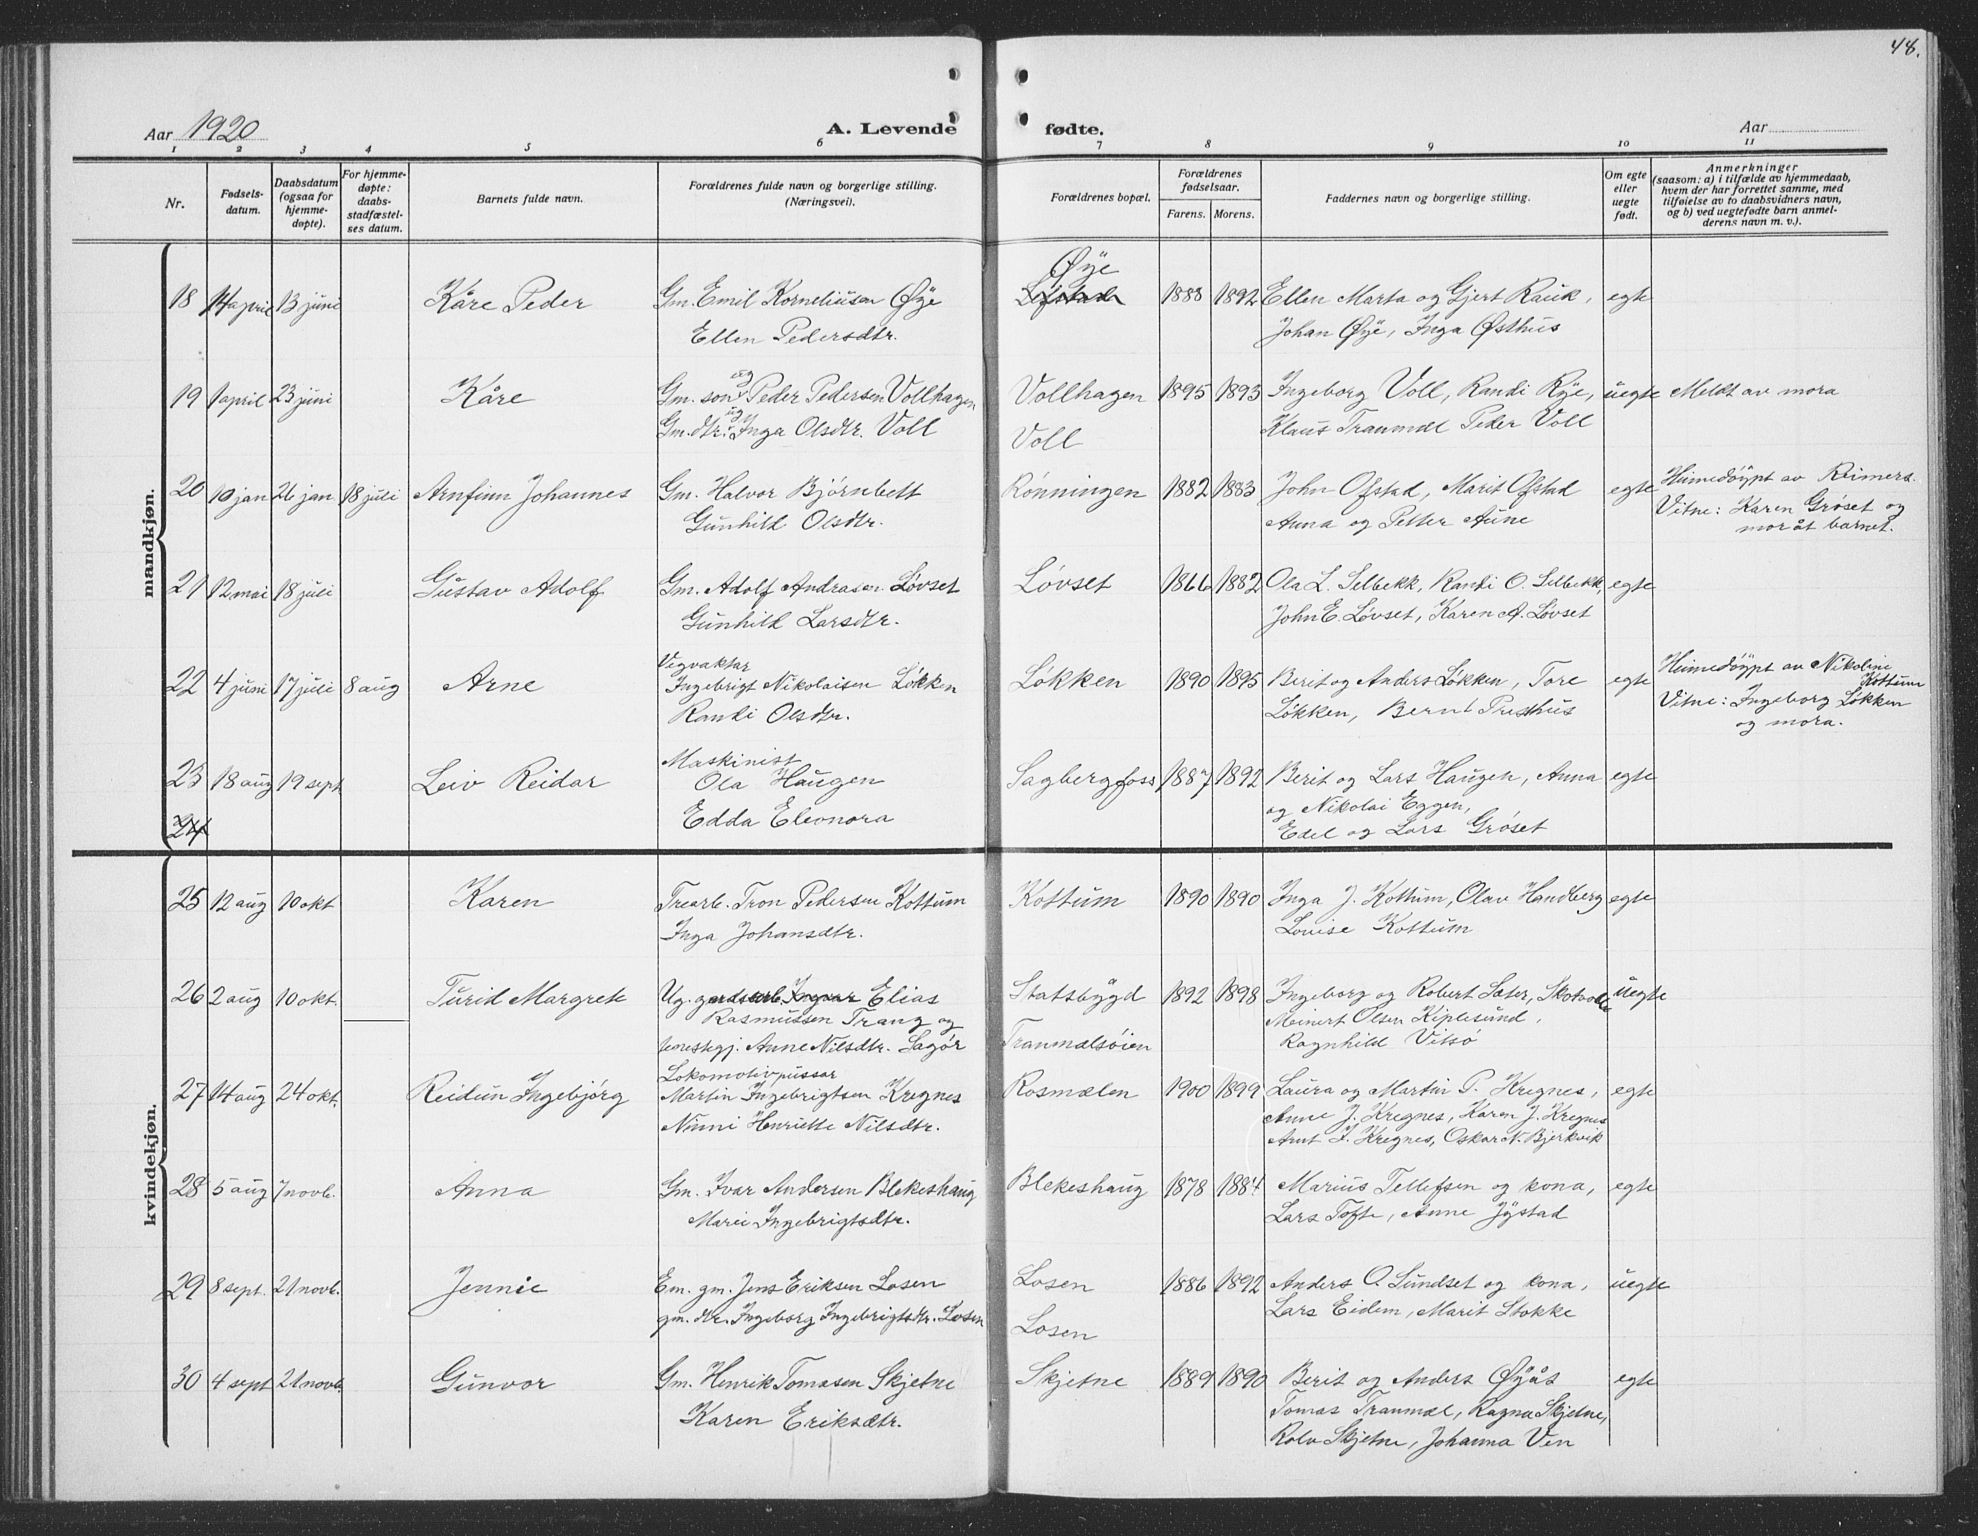 48.
Aar 1920 A. Levende fødte. Aar
1 2 3 4 5 6 7 8 9 10 11
Nr. Fødsels-datum. Daabsdatum (ogsaa for hjemme-døpte). For hjemme-døpte: daabs-stadfæstel-ses datum. Barnets fulde navn. Forældrenes fulde navn og borgerlige stilling. (Næringsvei). Forældrenes bopæl. Forældrenes fødselsaar. Farens. Morens. Faddernes navn og borgerlige stilling. Om egte eller uegte født. Anmerkninger (saasom: a) i tilfælde av hjemmedaab, hvem der har forrettet samme, med tilføielse av to daabsvidners navn, og b) ved uegtefødte barn anmel-derens navn m. v.).
mandkjøn.
18 14 april 13 juni Kåre Peder Gm. Emil Korneliusen Øye Øye 1888 1892 Ellen Marta og Gjert Rauk, egte
Ellen Pedersdtr. Johan Øye, Inga Østhus
19 1 april 23 juni Kåre Gm. son ug Peder Pedersen Vollhagen Vollhagen 1895 1893 Ingeborg Voll, Randi Rye, uegte Meldt av mora
Gm. dtr. ug Inga Olsdtr. Voll Voll Klaus Tranmæl Peder Voll
20 10 jan 26 jan 18 juli Arnfinn Johannes Gm. Halvor Bjørnbett Rønningen 1882 1883 John Ofstad, Marit Ofstad egte Heimedøypt av Reimers.
Gunhild Olsdtr. Anna og Petter Aune Vitne: Karen Grøset og
mor åt barnet.
21 12 mai 18 juli Gustav Adolf Gm. Adolf Andrasen Løvset Løvset 1866 1882 Ola L. Selbekk, Randi O. Selbekk, egte
Gunhild Larsdtr. John E. Løvset, Karen A. Løvset
22 4 juni 17 juli 8 aug Arne Vegvaktar Løkken 1890 1895 Berit og Anders Løkken, Tore egte Heimedøypt av Nikoline Kottum
Ingebrigt Nikolaisen Løkken Løkken, Bernt Presthus Vitne: Ingeborg Løkken
Randi Olsdtr. og mora.
23 18 aug 19 sept Leiv Reidar Maskinist Sagbergfoss 1887 1892 Berit og Lars Haugen, Anna egte
Ola Haugen og Nikolai Eggen,
24 Edda Eleonora Edel og Lars Grøset
kvindekjøn.
25 12 aug 10 okt Karen Trearb. Tron Pedersen Kottum Kottum 1890 1890 Inga J. Kottum, Olav Handberg egte
Inga Johansdtr. Louise Kottum
26 2 aug 10 okt. Turid Margrete Ug. gardsarb. Ingvar Elias Statsbygd 1892 1898 Ingeborg og Robert Sæter, uegte
Rasmussen Trang og Meinert Olsen Kiplesund,
tenestegj. Anne Nilsdtr. Sagør Tranmælsøien Ragnhild Vitsø
27 14 aug 24 okt. Reidun Ingebjørg Lokomotivpussar Rosmælen 1900 1899 Laura og Martin P. Kregnes, egte
Martin Ingebrigtsen Kregnes Anne J. Kregnes, Karen J. Kregnes
Ninni Henriette Nilsdtr. Arnt J. Kregnes, Oskar N. Bjerkvik
28 5 aug 7 novb. Anna Gm. Ivar Andersen Blekeshaug Blekeshaug 1878 1884 Marius Tellefsen og kona, egte
Marei Ingebrigtsdtr. Lars Tofte, Anne Jystad
29 8 sept. 21 novb. Jennie Em. gm. Jens Eriksen Losen Losen 1886 1892 Anders O. Sundset og kona, uegte
gm. dtr. Ingeborg Ingebrigtsdtr. Losen Losen Lars Eidem, Marit Stokke
30 4 sept 21 novb. Gunvor Gm. Henrik Tomasen Skjetne Skjetne 1889 1890 Berit og Anders Øyås egte
Karen Eriksdtr. Tomas Tranmæl, Ragna Skjetne,
Rolv Skjetne, Johanna Ven